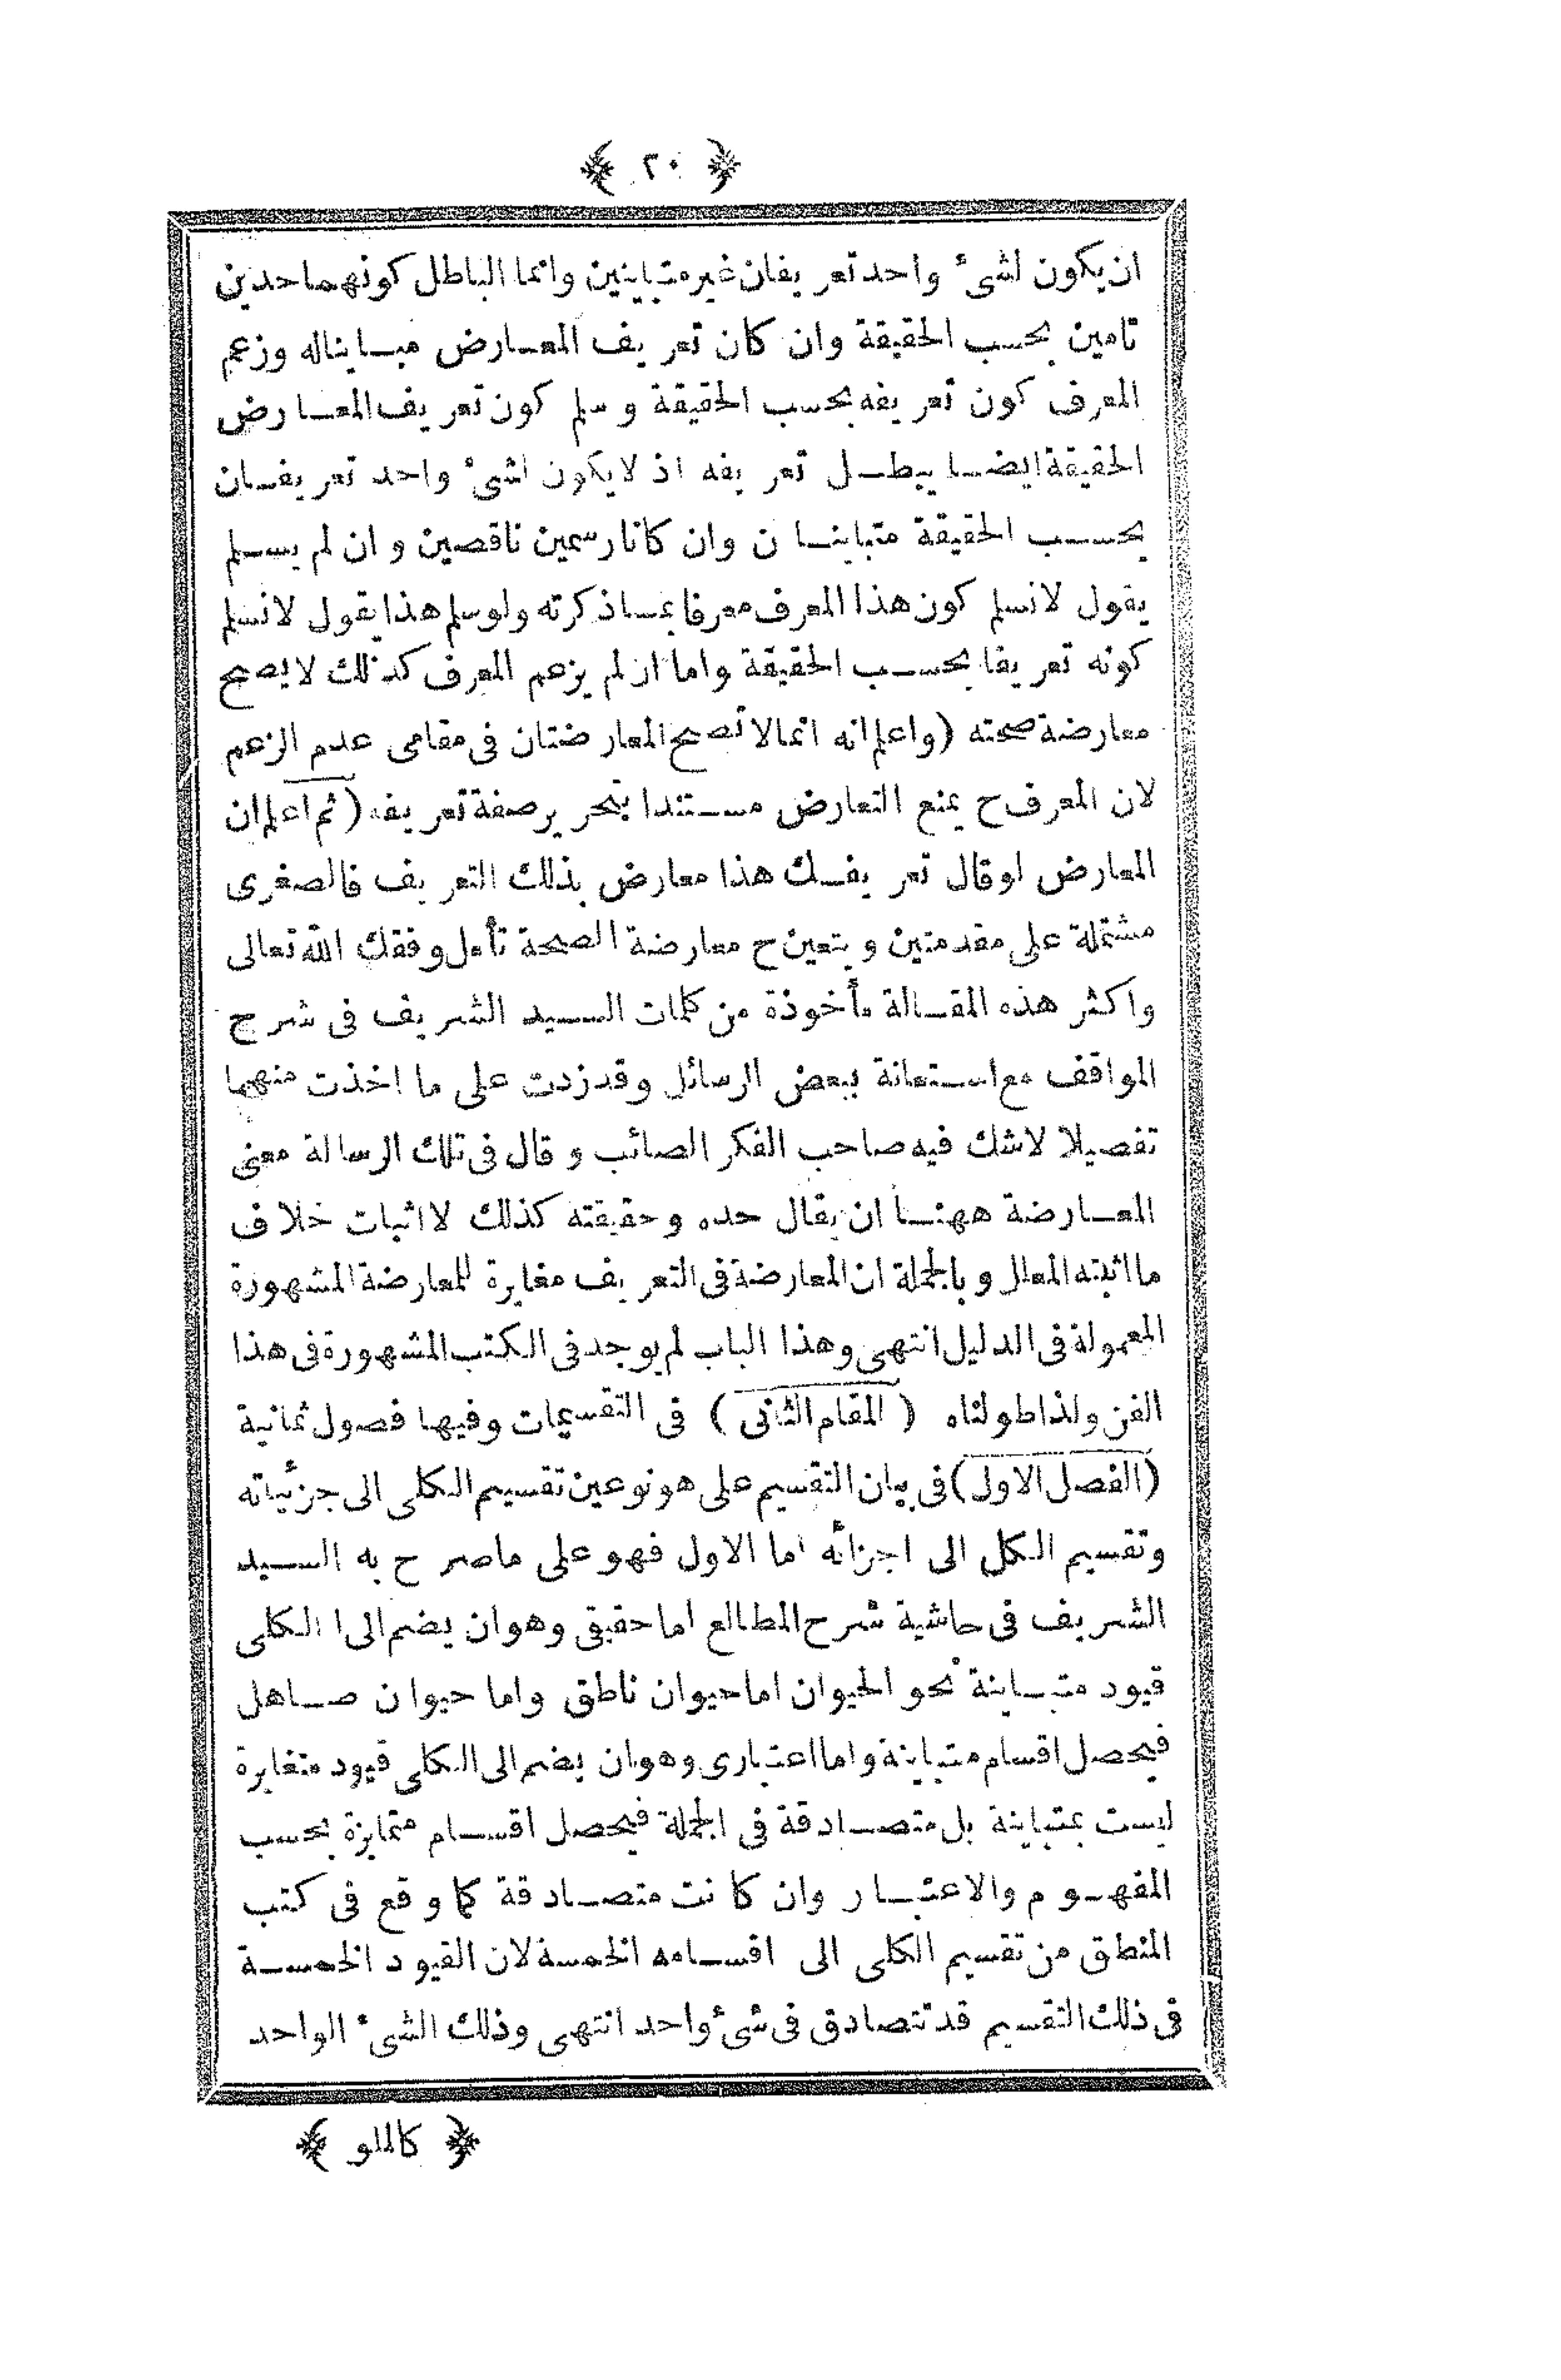 ﴿ ٢٠ ﴾
ان يكون لشئ واحد تعريفان غير متباينين وانما الباطل كونهما حدين
تامين بحسب الحقيقة وان كان تعريف المعارض مباينا له وزعم
المعرف كون تعريفه بحسب الحقيقة وسلم كون تعريف المعارض
الحقيقة ايضا يبطل تعريفه اذ لا يكون لشئ واحد تعريفان
بحسب الحقيقة متباينان وان كانا رسمين ناقصين وان لم يسلم
يقول لا نسلم كون هذا المعرف معرفا بما ذكرته ولو سلم هذا يقول لا نسلم
كونه تعريفا بحسب الحقيقة واما ان لم يزعم المعرف كذلك لا يصح
معارضة صحته (واعلم انه انما لا تصح المعارضتان فى مقامى عدم الزعم
لان المعرف ح يمنع التعارض مستندا بتحرير صفة تعريفه (ثم اعلم ان
المعارض لو قال تعريفك هذا معارض بذلك التعريف فالصغرى
مشتملة على مقدمتين ويتعين ح معارضة الصحة تأمل وفقك الله تعالى
واكثر هذه المقالة مأخوذة من كلمات السيد الشريف فى شرح
المواقف مع استعانة ببعض الرسائل وقد زدت على ما اخذت منهما
تفصيلا لا شك فيه صاحب الفكر الصائب وقال فى تلك الرسالة معنى
المعارضة ههنا ان يقال حده وحقيقته كذلك لا اثبات خلاف
ما اثبته المعلل وبالجملة ان المعارضة فى التعريف مغايرة للمعارضة المشهورة
المعمولة فى الدليل انتهى وهذا الباب لم يوجد فى الكتب المشهورة فى هذا
الفن ولذا طولناه (المقام الثانى) فى التقسيمات وفيها فصول ثمانية
(الفصل الاول) فى بيان التقسيم على هو نوعين تقسيم الكلى الى جزئياته
وتقسيم الكل الى اجزائه اما الاول فهو على ما صرح به السيد
الشريف فى حاشية شرح المطالع اما حقيقى وهو ان يضم الى الكلى
قيود متباينة نحو الحيوان اما حيوان ناطق واما حيوان صاهل
فيحصل اقسام متباينة واما اعتبارى وهو ان يضم الى الكلى قيود متغايرة
ليست بمتباينة بل متصادقة فى الجملة فيحصل اقسام متمايزة بحسب
المفهوم والاعتبار وان كانت متصادقة كما وقع فى كتب
المنطق من تقسيم الكلى الى اقسامه الخمسة لان القيود الخمسة
فى ذلك التقسيم قد تتصادق فى شئ واحد انتهى وذلك الشئ الواحد
﴿ كالملو ﴾